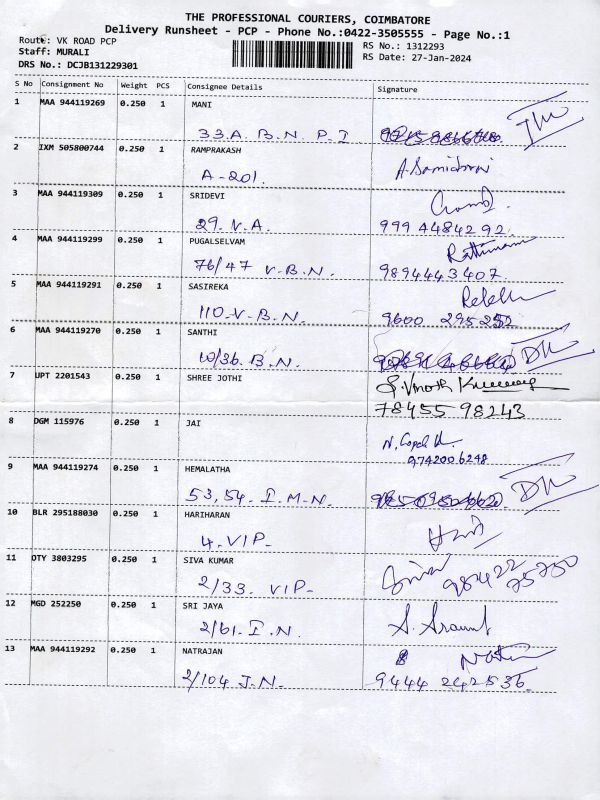 THE PROFESSIONAL COURIERS, COIMBATORE
Delivery Runsheet - PCP - Phone No.:0422-3505555 - Page No.:1
Route: VK ROAD PCP
RS No.: 1312293
Staff: MURALI
RS Date: 27-Jan-2024
DRS No.: DCJB131229301
S No Consignment No Weight PCS Consignee Details Signature
1 MAA 944119269 0.250 1 MANI
33.A. B.N. P.I
2 IXM 505800744 0.250 1 RAMPRAKASH
A-201.
3 MAA 944119309 0.250 1 SRIDEVI
29. V.A. 999 4484292.
4 MAA 944119299 0.250 1 PUGALSELVAM
76/47 V.B.N. 9894443407.
5 MAA 944119291 0.250 1 SASIREKA
110-V-B.N. 9600 295252
6 MAA 944119270 0.250 1 SANTHI
10/36. B.N.
7 UPT 2201543 0.250 1 SHREE JOTHI
78455 98243
8 DGM 115976 0.250 1 JAI
9742006248
9 MAA 944119274 0.250 1 HEMALATHA
53,54. I.M.N.
10 BLR 295188030 0.250 1 HARIHARAN
4. VIP-
11 OTY 3803295 0.250 1 SIVA KUMAR
2/33. VIP- 98422 75750
12 MGD 252250 0.250 1 SRI JAYA
2/61. I.N.
13 MAA 944119292 0.250 1 NATRAJAN
2/104 J.N. 9444 242536.